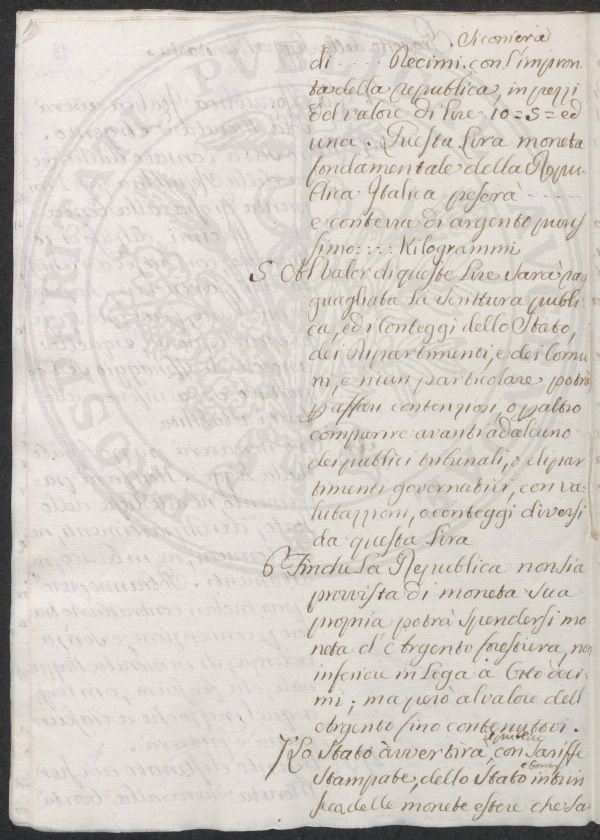 Si conierà
di ..... Decimi, con l'impron
ta della Republica, in pezzi
del valore di Lire 10=5= ed
una. Questa Lira moneta
fondamentale della Repu
blica Italica peserà .....
e conterrà di argento puris
simo ..... Kilogrammi
5 Al Valor di queste Lire sarà pa
guagliata la scrittura publi
ca, ed i Conteggi dello Stato,
dei Dipartimenti, e dei Comu
ni, e niun particolare potrà
passar contenziosi, o paltro
comparire avanti ad alcuno
dei publici tribunali, o dipar
timenti governativi, con va
lutazzioni, o conteggi diversi
da questa Lira
6 Finchè la Republica non sia
provvista di moneta sua
propria potrà spendersi mo
neta d'Argento forestiera, non
inferiore in Lega a Otto deci
mi; ma però al valore dell
Argento fino contenutovi.
il publico
7 Lo Stato avvertirà, con Tariffe
e bontà
stampate, dello Stato intrin
seco delle monete estere che sa
PROSPERITATI PUBLICAE AUG